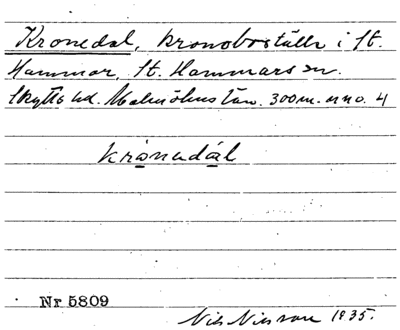 Kronedal, kronoboställe i St.
Hammar, St. Hammars sn.
Skytts hd. Malmöhus län. 300m. nno. 4
krånadál
Nr 5809
Nils Nilsson 1935.